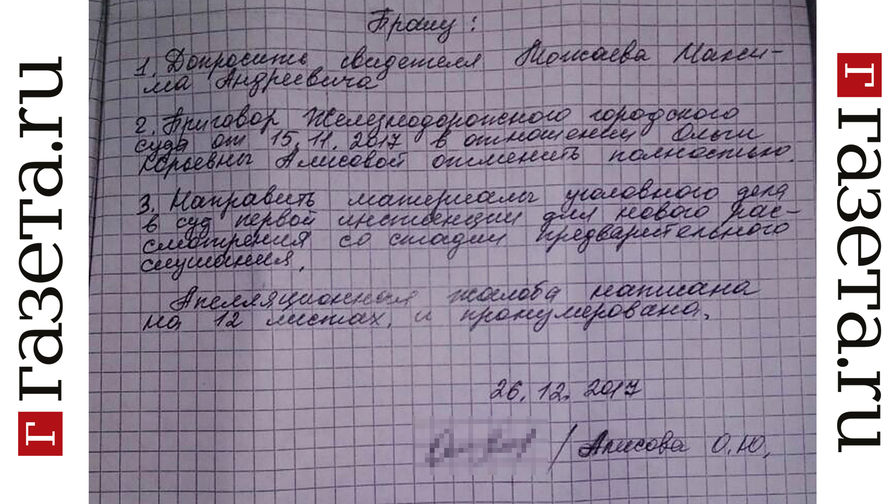 Прошу:
1. Допросить свидетеля Можаева Макси-
ма Андреевича
2. Приговор Железнодорожного городского
суда от 15.11.2017 в отношении Ольги
Юрьевны Алисовой отменить полностью.
3. Направить материалы уголовного дела
в суд первой инстанции для нового рас-
смотрения со стадии предварительного
слушания.
Апелляционная жалоба написана
на 12 листах, и пронумерована.
26.12.2017
/ Алисова О.Ю.
г газета.ru
г газета.ru